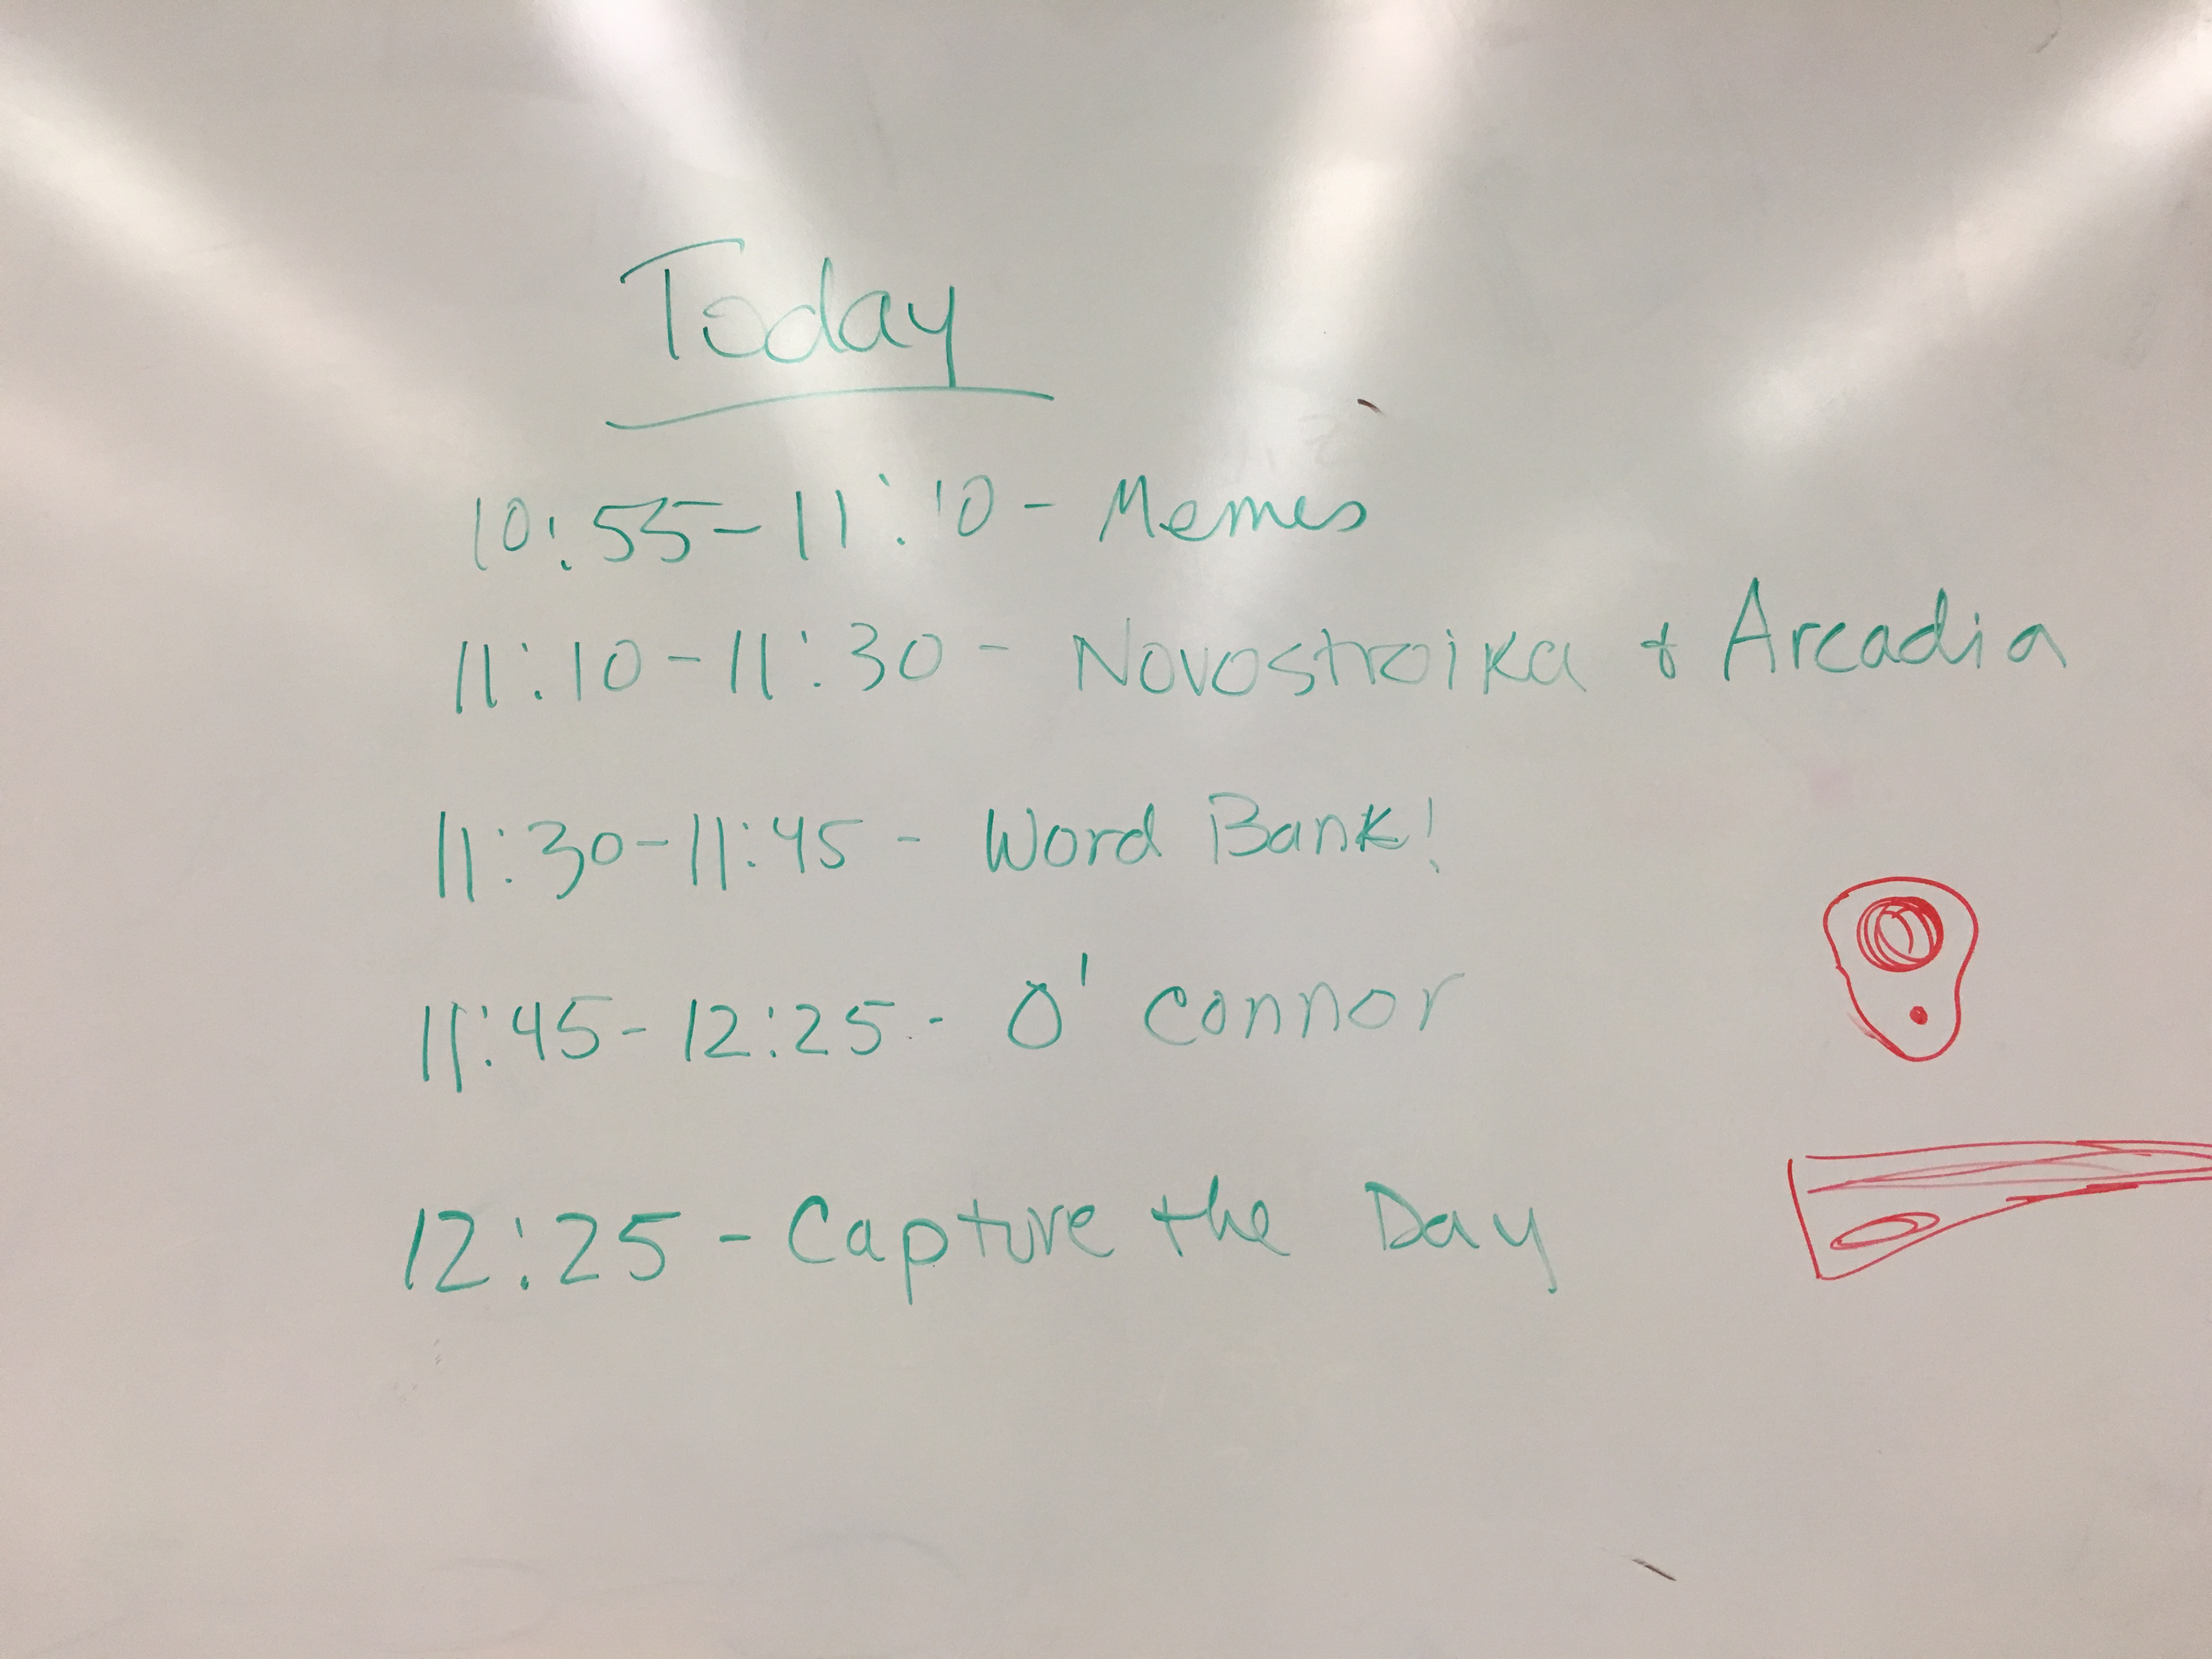 Today
10:55-11:10 - Memes
11:10-11:30 - Novostroika & Arcadia
11:30-11:45 - Word Bank!
11:45-12:25 - O'Connor
12:25 - Capture the Day